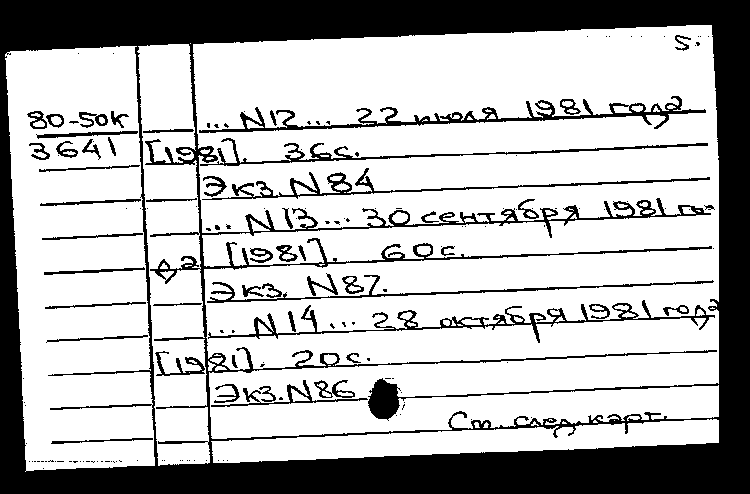 5.
80-50к ... N12 ... 22 июля 1981 года
3641 [1981]. 36с.
Экз. N84
... N13 ... 30 сентября 1981 го-
да [1981]. 60с.
Экз. N87.
... N14 ... 28 октября 1981 года
[1981]. 20с.
Экз. N86
См. след. карт.